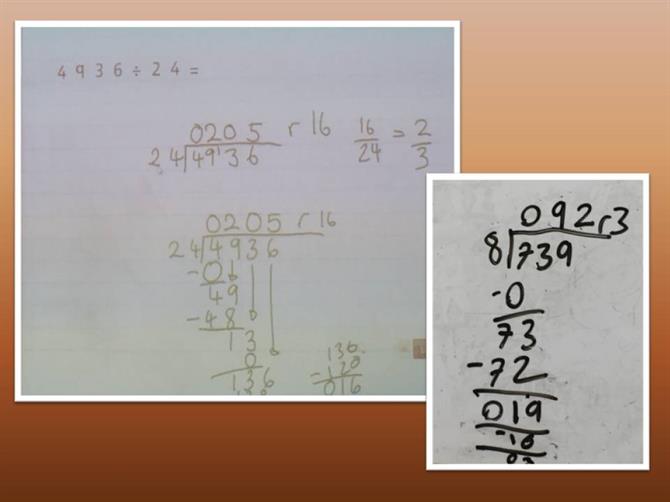 4 9 3 6 ÷ 2 4 =
0205 r 16 16/24 = 2/3
24 49136
0205 r 16
24 4936
-0
49
-48
13
0
136
136
-120
016
092r3
8 739
-0
73
-72
019
-16